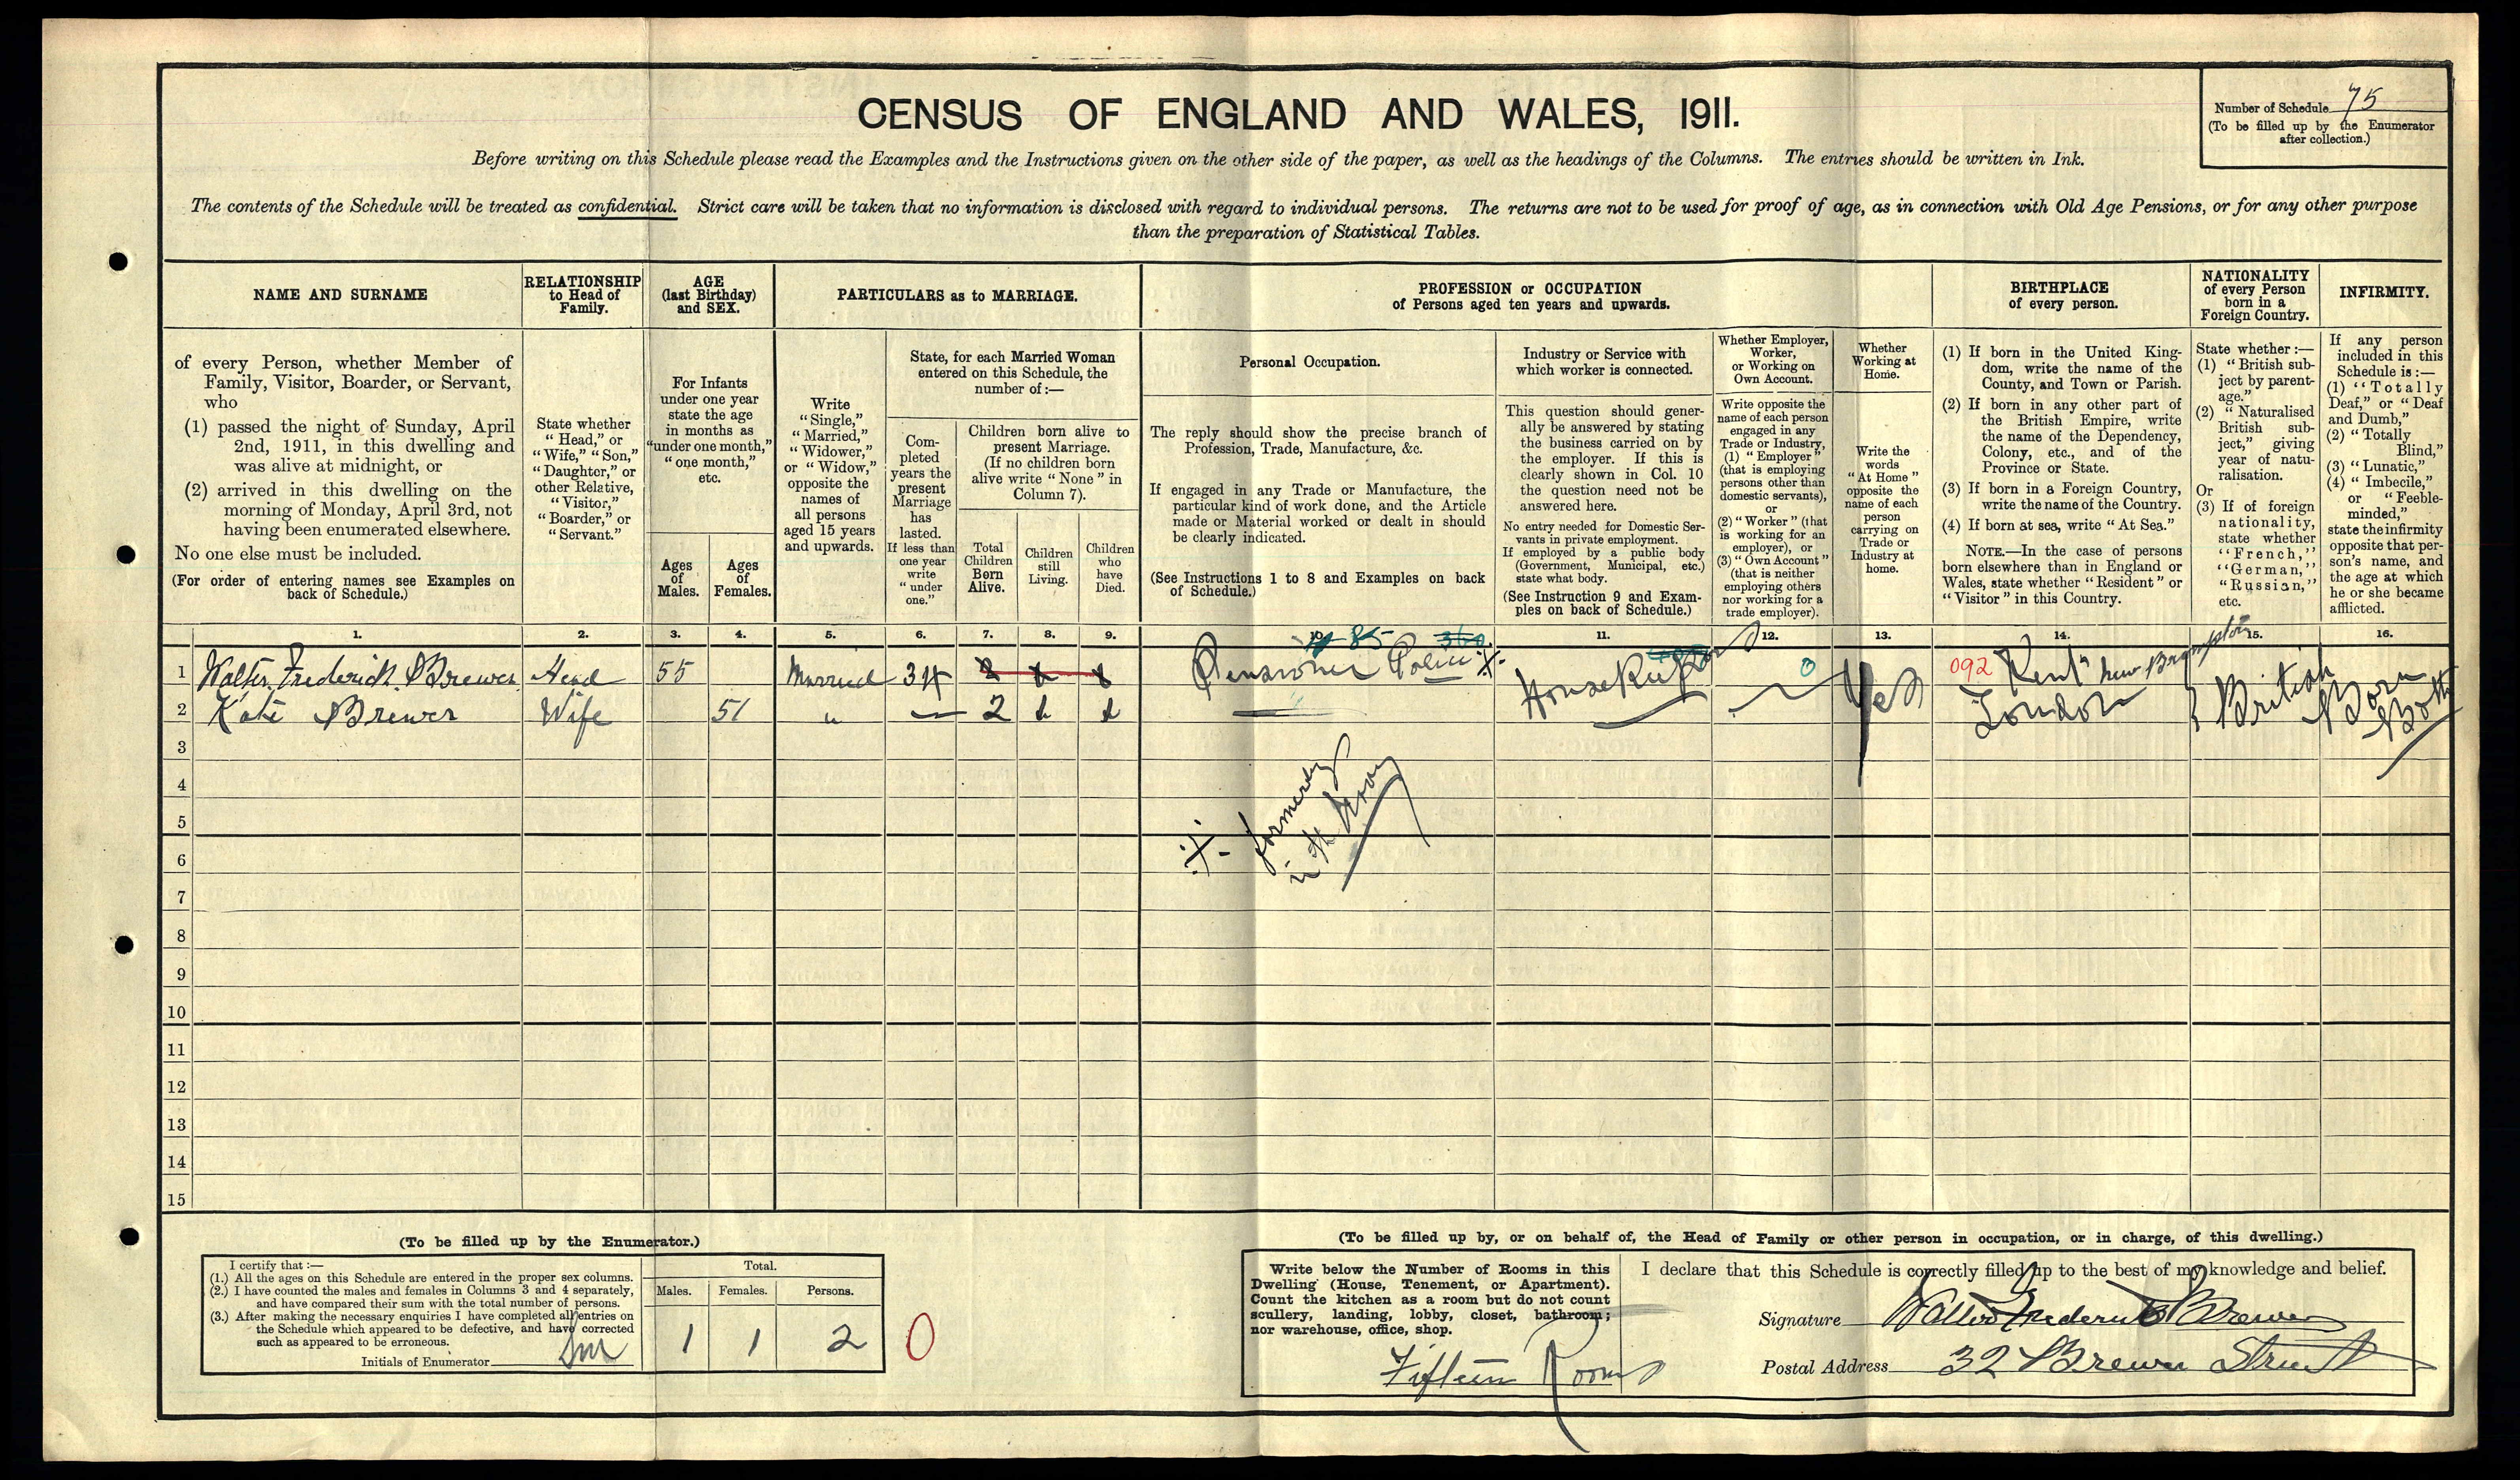 CENSUS OF ENGLAND AND WALES, 1911.
Number of Schedule 75
(To be filled up by the Enumerator
after collection.)
Before writing on this Schedule please read the Examples and the Instructions given on the other side of the paper, as well as the headings of the Columns. The entries should be written in Ink.
The contents of the Schedule will be treated as confidential. Strict care will be taken that no information is disclosed with regard to individual persons. The returns are not to be used for proof of age, as in connection with Old Age Pensions, or for any other purpose
than the preparation of Statistical Tables.
NAME AND SURNAME
of every Person, whether Member of
Family, Visitor, Boarder, or Servant,
who
(1) passed the night of Sunday, April
2nd, 1911, in this dwelling and
was alive at midnight, or
(2) arrived in this dwelling on the
morning of Monday, April 3rd, not
having been enumerated elsewhere.
No one else must be included.
(For order of entering names see Examples on
back of Schedule.)
RELATIONSHIP
to Head of
Family.
State whether
"Head," or
"Wife," "Son,"
"Daughter," or
other Relative,
"Visitor,"
"Boarder," or
"Servant."
AGE
(last Birthday)
and SEX.
For Infants
under one year
state the age
in months as
"under one month,"
"one month,"
etc.
Ages
of
Males.
Ages
of
Females.
PARTICULARS as to MARRIAGE.
Write
"Single,"
"Married,"
"Widower,"
or "Widow,"
opposite the
names of
all persons
aged 15 years
and upwards.
State, for each Married Woman
entered on this Schedule, the
number of:—
Com-
pleted
years the
present
Marriage
has
lasted.
If less than
one year
write
"under
one."
Children born alive to
present Marriage.
(If no children born
alive write "None" in
Column 7).
Total
Children
Born
Alive.
Children
still
Living.
Children
who
have
Died.
PROFESSION or OCCUPATION
of Persons aged ten years and upwards.
Personal Occupation.
The reply should show the precise branch of
Profession, Trade, Manufacture, &c.
If engaged in any Trade or Manufacture, the
particular kind of work done, and the Article
made or Material worked or dealt in should
be clearly indicated.
(See Instructions 1 to 8 and Examples on back
of Schedule.)
Industry or Service with
which worker is connected.
This question should gener-
ally be answered by stating
the business carried on by
the employer. If this is
clearly shown in Col. 10
the question need not be
answered here.
No entry needed for Domestic Ser-
vants in private employment.
If employed by a public body
(Government, Municipal, etc.)
state what body.
(See Instruction 9 and Exam-
ples on back of Schedule.)
Whether Employer,
Worker,
or Working on
Own Account.
Write opposite the
name of each person
engaged in any
Trade or Industry,
(1) "Employer"
(that is employing
persons other than
domestic servants),
or
(2) "Worker" (that
is working for an
employer), or
(3) "Own Account"
(that is neither
employing others
nor working for a
trade employer).
Whether
Working at
Home.
Write the
words
"At Home"
opposite the
name of each
person
carrying on
Trade or
Industry at
home.
BIRTHPLACE
of every person.
(1) If born in the United King-
dom, write the name of the
County, and Town or Parish.
(2) If born in any other part of
the British Empire, write
the name of the Dependency,
Colony, etc., and of the
Province or State.
(3) If born in a Foreign Country,
write the name of the Country.
(4) If born at sea, write "At Sea."
NOTE.—In the case of persons
born elsewhere than in England or
Wales, state whether "Resident" or
"Visitor" in this Country.
NATIONALITY
of every Person
born in a
Foreign Country.
State whether:—
(1) "British sub-
ject by parent-
age."
(2) "Naturalised
British sub-
ject," giving
year of natu-
ralisation.
Or
(3) If of foreign
nationality,
state whether
"French,"
"German,"
"Russian,"
etc.
INFIRMITY.
If any person
included in this
Schedule is:—
(1) "Totally
Deaf," or "Deaf
and Dumb,"
(2) "Totally
Blind,"
(3) "Lunatic,"
(4) "Imbecile,"
or "Feeble-
minded,"
state the infirmity
opposite that per-
son's name, and
the age at which
he or she became
afflicted.
1. 2. 3. 4. 5. 6. 7. 8. 9. 10. 11. 12. 13. 14. 15. 16.
85 360
1 Walter Frederick Brewer Head 55 Married 34 Pensioner Police Housekeepers 0 Yes 092 Kent New Brompton British Born Both
2 Kate Brewer Wife 51 " — 2 London
3
4
formerly
in the Army
5
6
7
8
9
10
11
12
13
14
15
(To be filled up by the Enumerator.)
I certify that:—
(1.) All the ages on this Schedule are entered in the proper sex columns.
(2.) I have counted the males and females in Columns 3 and 4 separately,
and have compared their sum with the total number of persons.
(3.) After making the necessary enquiries I have completed all entries on
the Schedule which appeared to be defective, and have corrected
such as appeared to be erroneous.
Initials of Enumerator
Total.
Males. Females. Persons.
1 1 2
0
(To be filled up by, or on behalf of, the Head of Family or other person in occupation, or in charge, of this dwelling.)
Write below the Number of Rooms in this
Dwelling (House, Tenement, or Apartment).
Count the kitchen as a room but do not count
scullery, landing, lobby, closet, bathroom;
nor warehouse, office, shop.
Fifteen Rooms
I declare that this Schedule is correctly filled up to the best of my knowledge and belief.
Signature Walter Frederick Brewer
Postal Address 32 Brewer Street